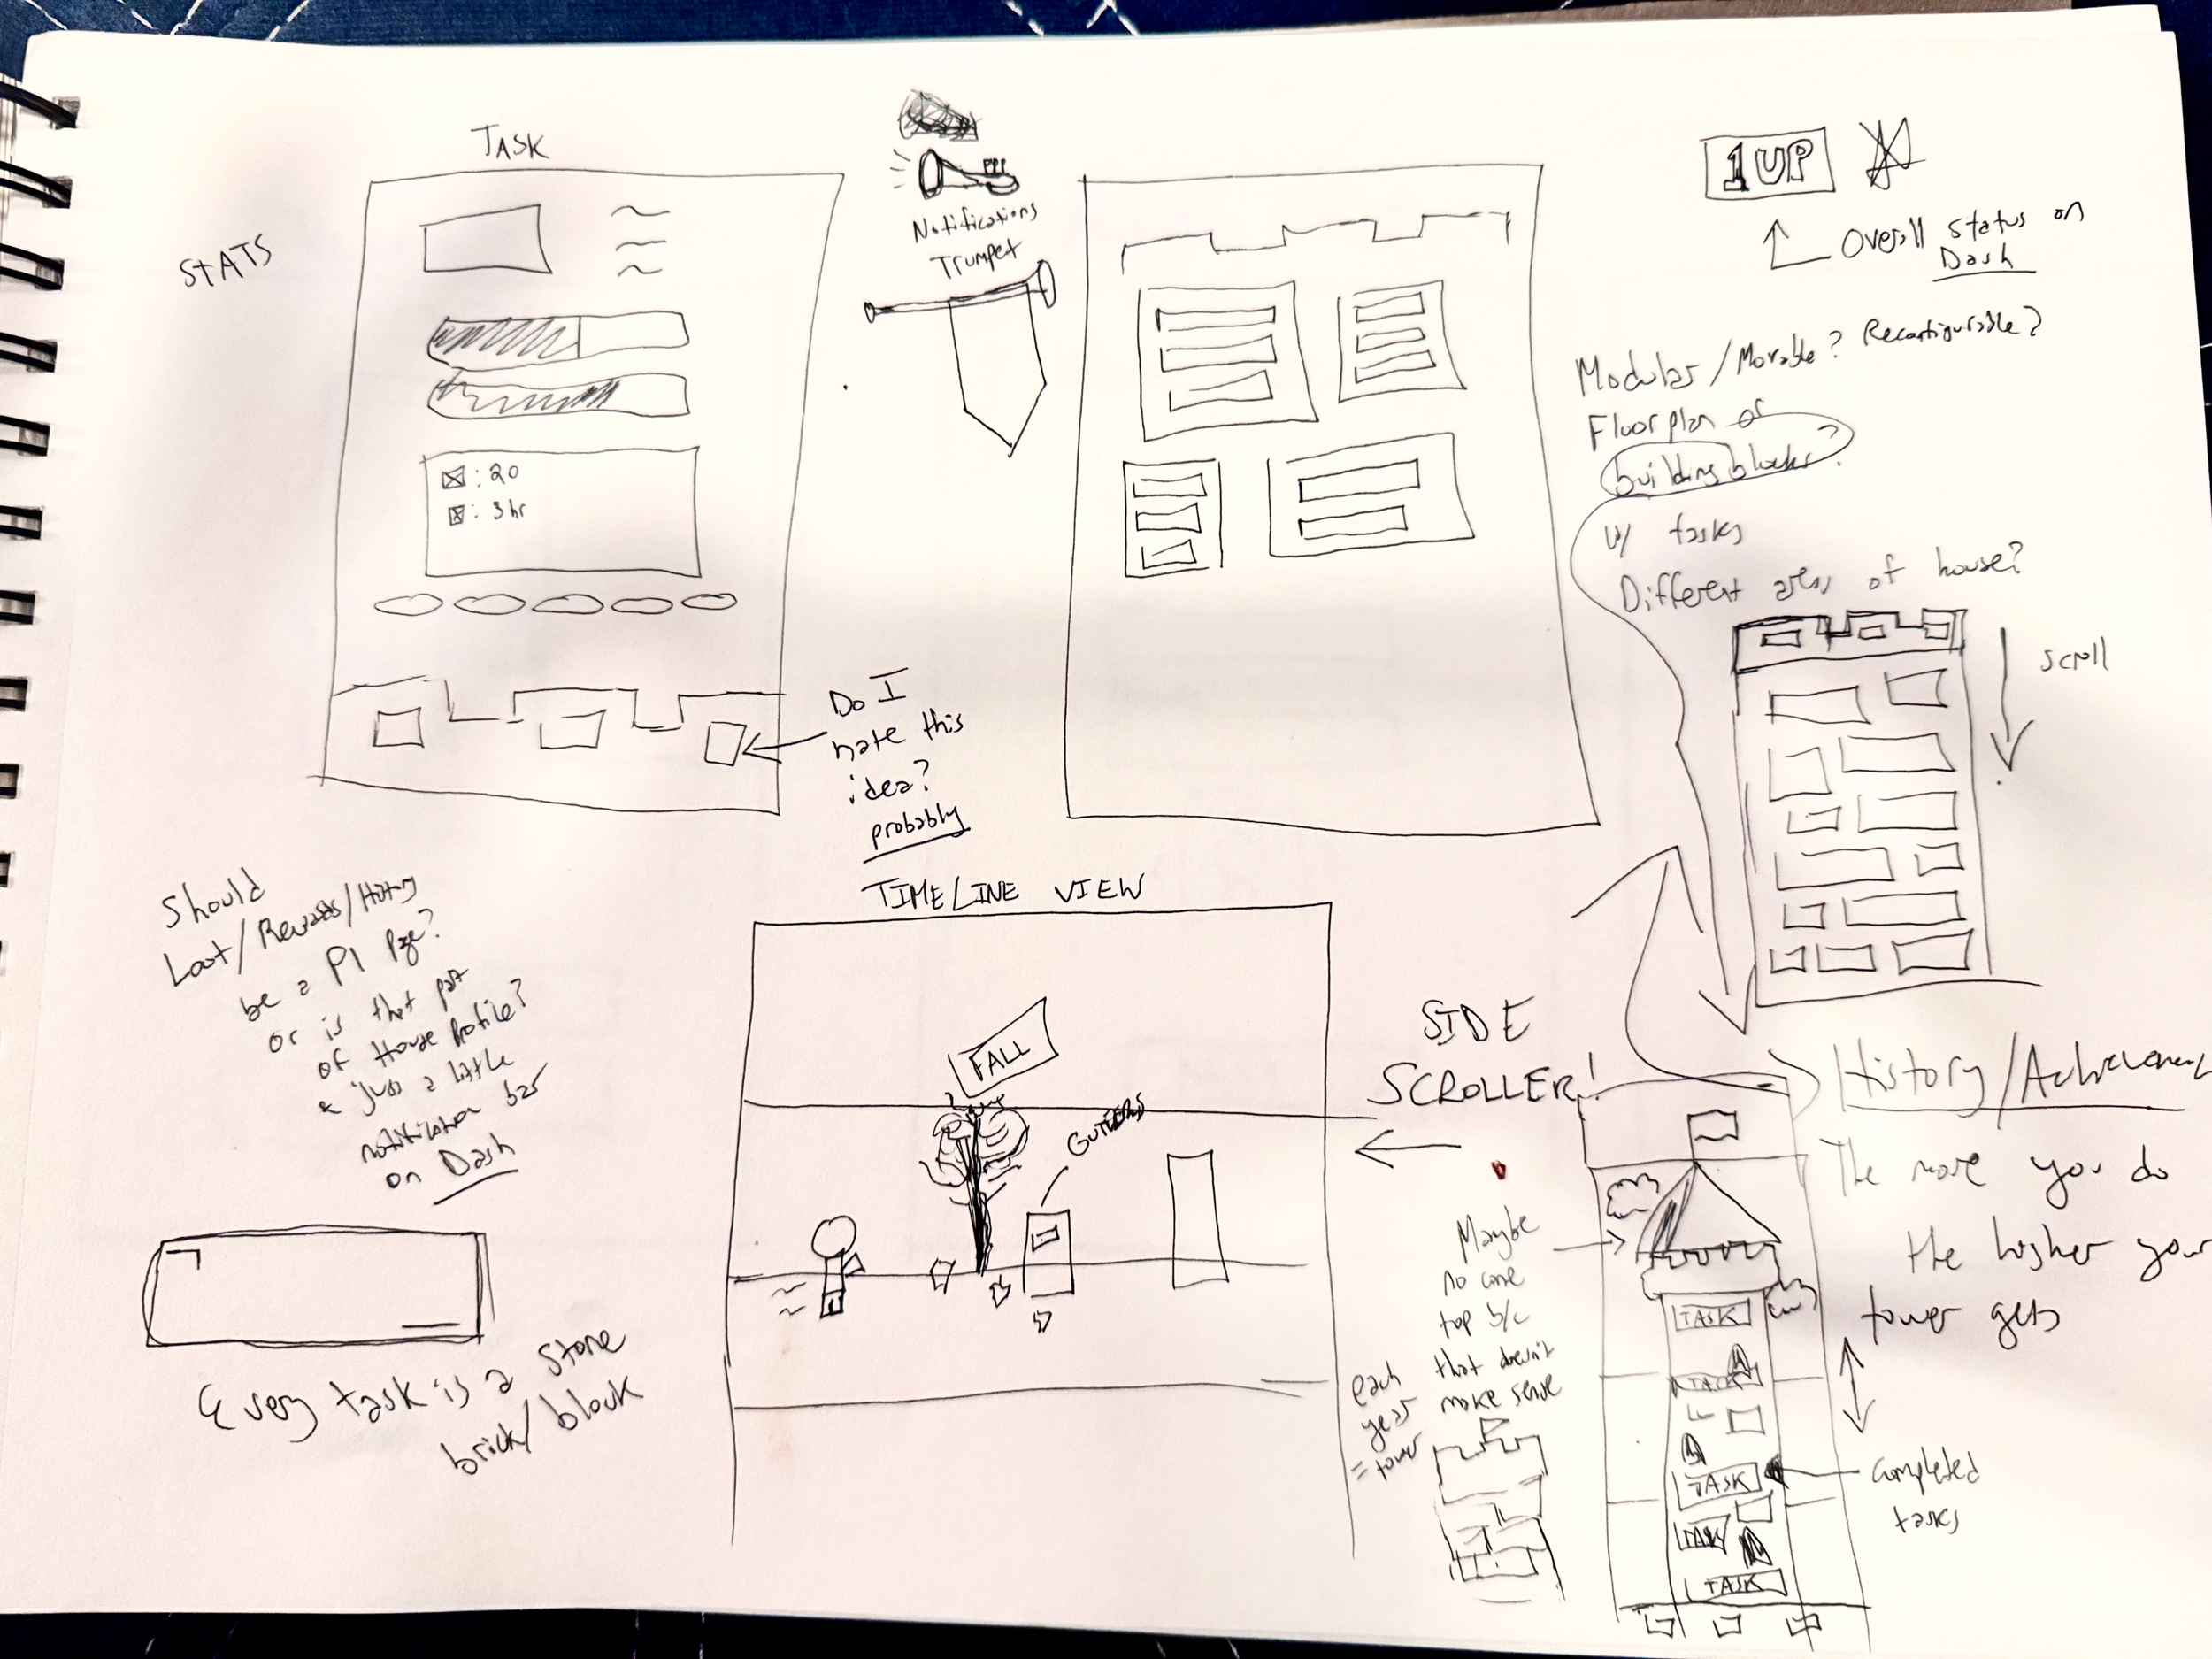 TASK
STATS
: 20
: 3hr
Do I
hate this
idea?
probably
Notifications
Trumpet
1UP
Overall status on
Dash
Modular/Movable? Reconfigurable?
Floorplan or
building blocks?
w/ tasks
Different areas of house?
scroll
Should
Loot/Rewards/History
be a P1 Page?
or is that part
of House Profile?
& just a little
notification bar
on Dash
Every task is a stone
brick/block
TIMELINE VIEW
FALL
GUTTERS
SIDE
SCROLLER!
Maybe
no cone
top b/c
that doesn't
make sense
each
year
= tower
History/Achievement
The more you do
the higher your
tower gets
TASK
TASK
TASK
TASK
TASK
completed
tasks